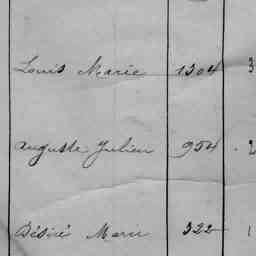 Louis Marie 1304 3
Auguste Julien 954 . 2
Désiré Marie 322 1